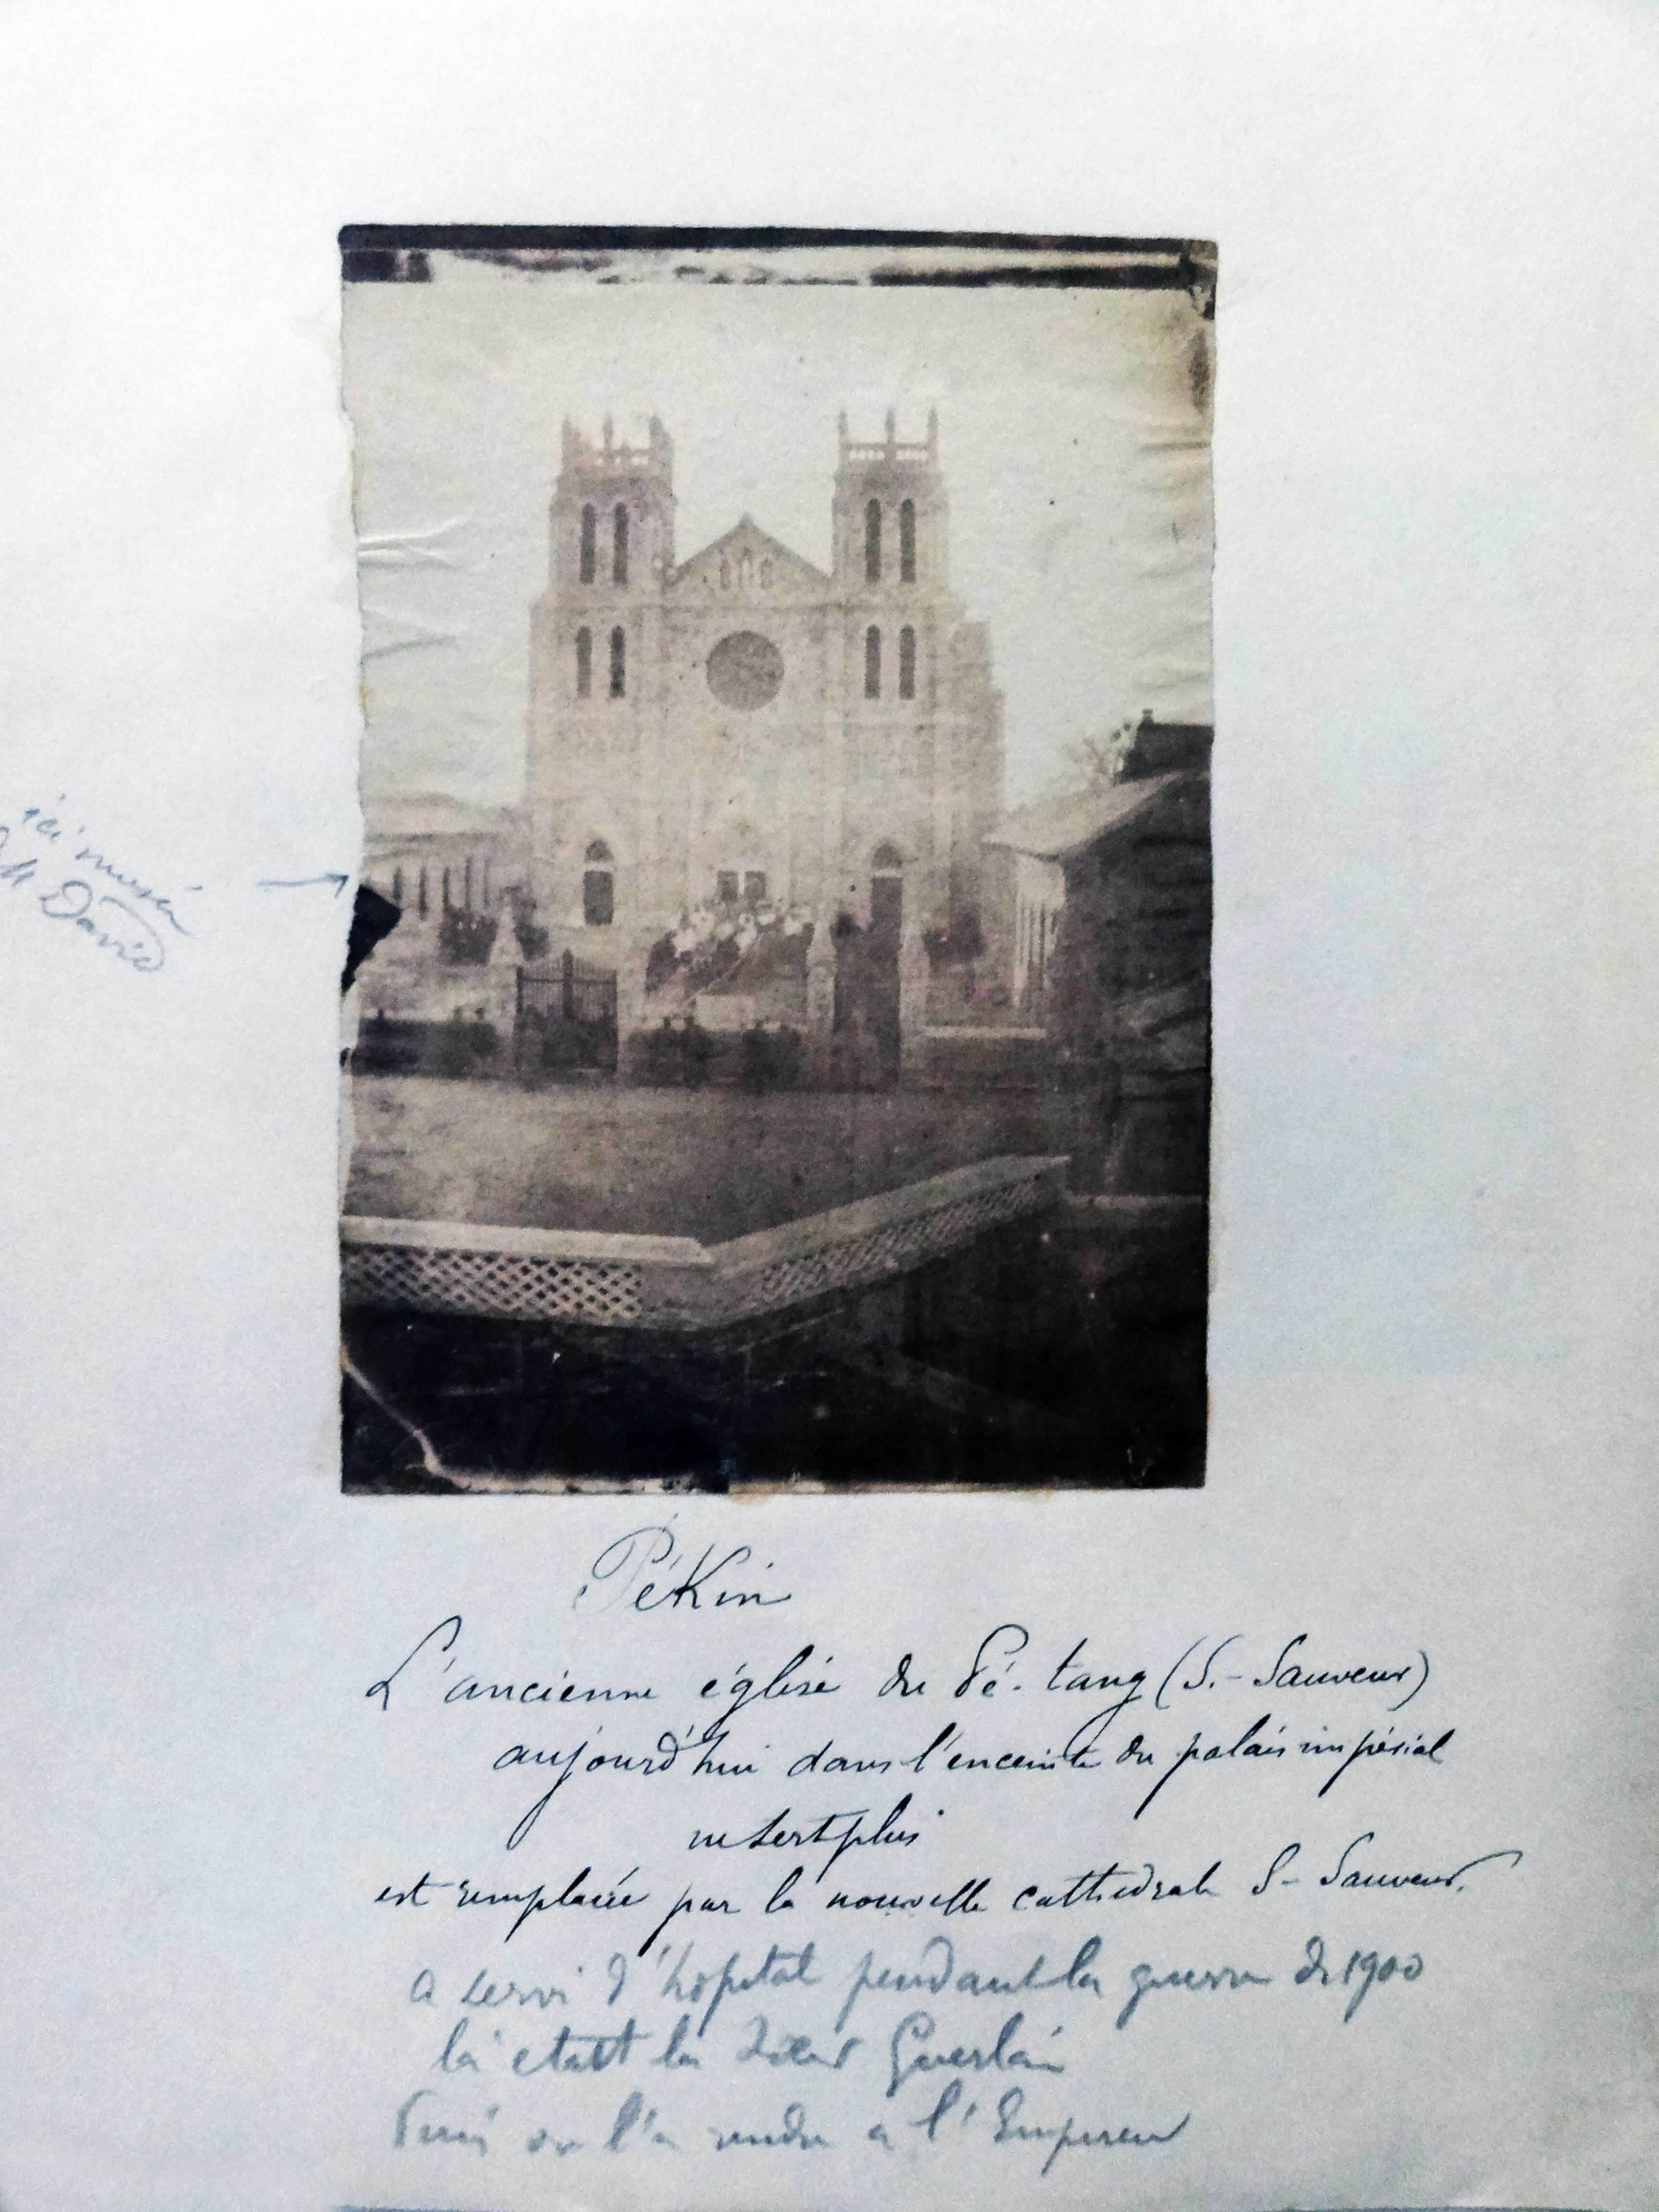 ici musée
M David
Pékin
L'ancienne église du Pé-tang (S.-Sauveur)
aujourd'hui dans l'enceinte du palais impérial
ne sert plus
est remplacée par la nouvelle cathédrale S-Sauveur.
a servi d'hôpital pendant la guerre de 1900
là etait la Sœur Guerlain
Puis on l'a rendu a l'Empereur